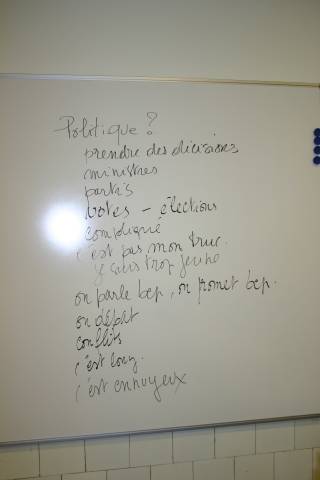 Politique?
prendre des décisions
ministres
partis
votes - élections
compliqué
c'est pas mon truc.
je suis trop jeune
on parle bcp, on promet bcp.
on débat
conflits
c'est long.
c'est ennuyeux